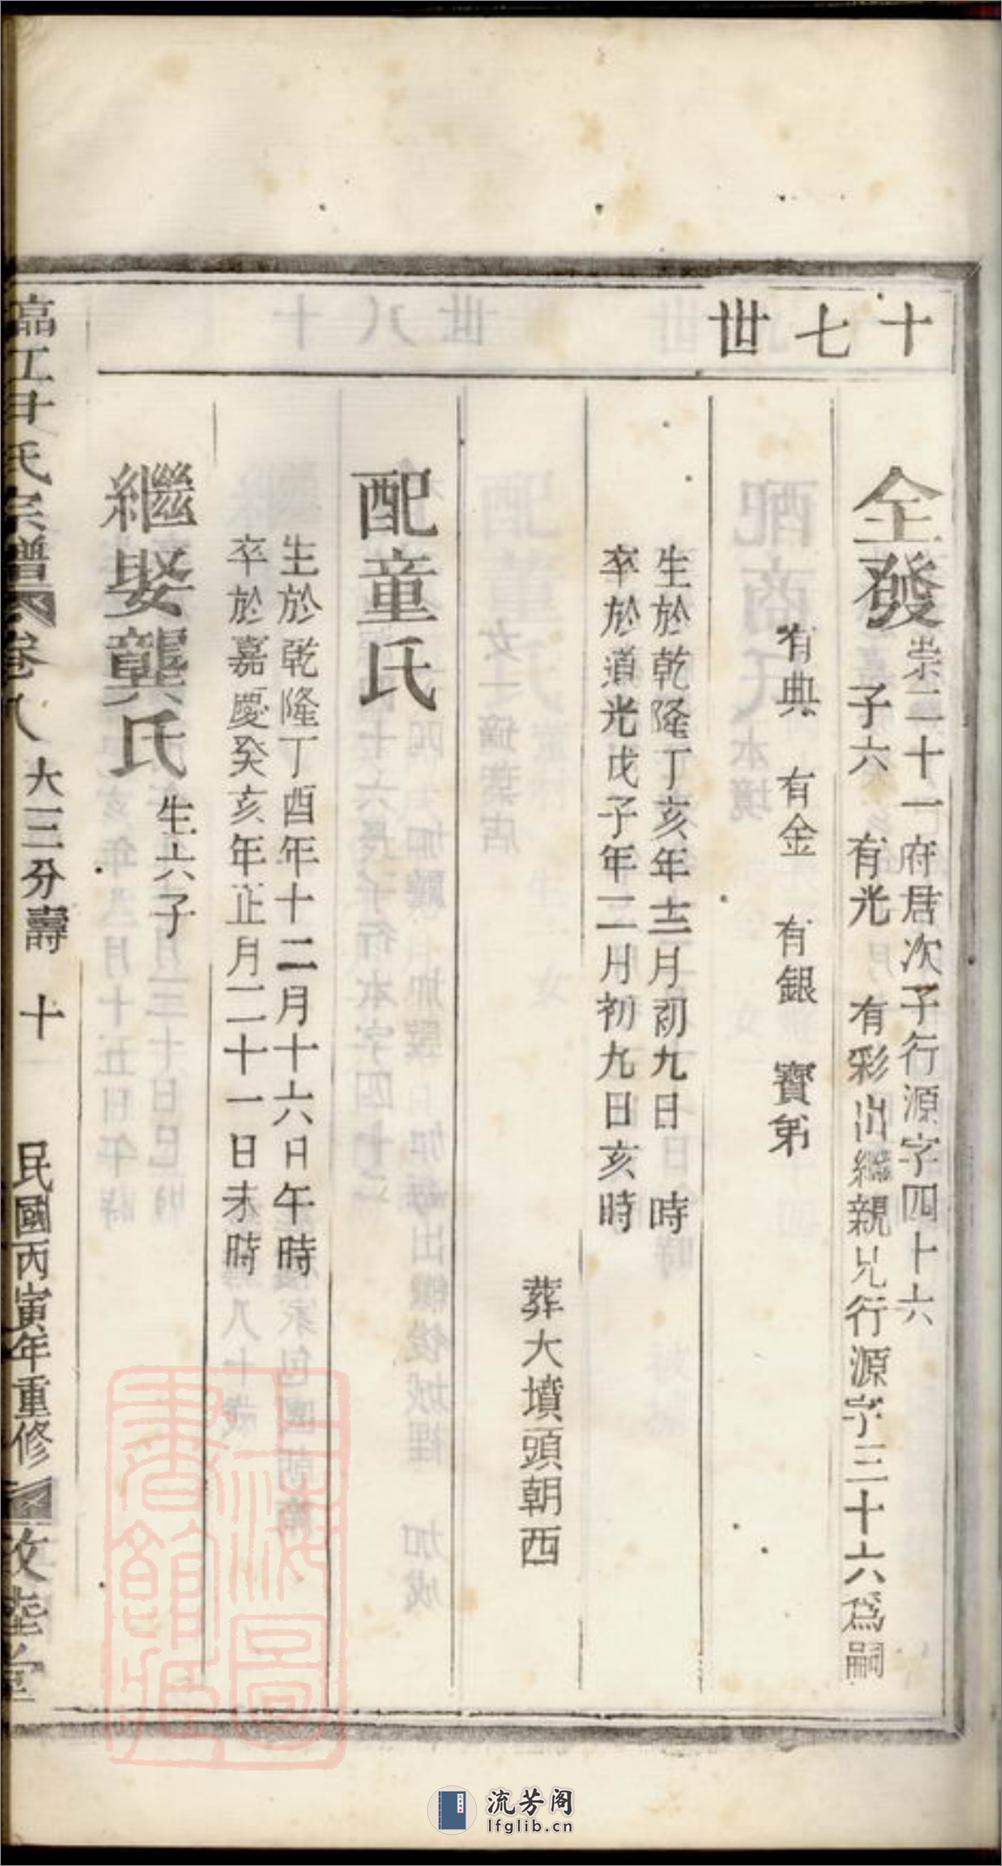 十七世
全發
崇二十一府君次子行源字四十六
子六 有光 有彩出繼親兄行源字三十六為嗣
有典 有金 有銀 寶弟
生於乾隆丁亥年十二月初九日 時
卒於道光戊子年二月初九日亥時
葬大墳頭朝西
配童氏
生於乾隆丁酉年十二月十六日午時
卒於嘉慶癸亥年正月二十一日未時
繼娶龔氏
生六子
臨江 氏宗譜 卷八 大三分壽 十 民國丙寅年重修 敦睦堂
上海圖書館藏
流芳阁
lfglib.cn